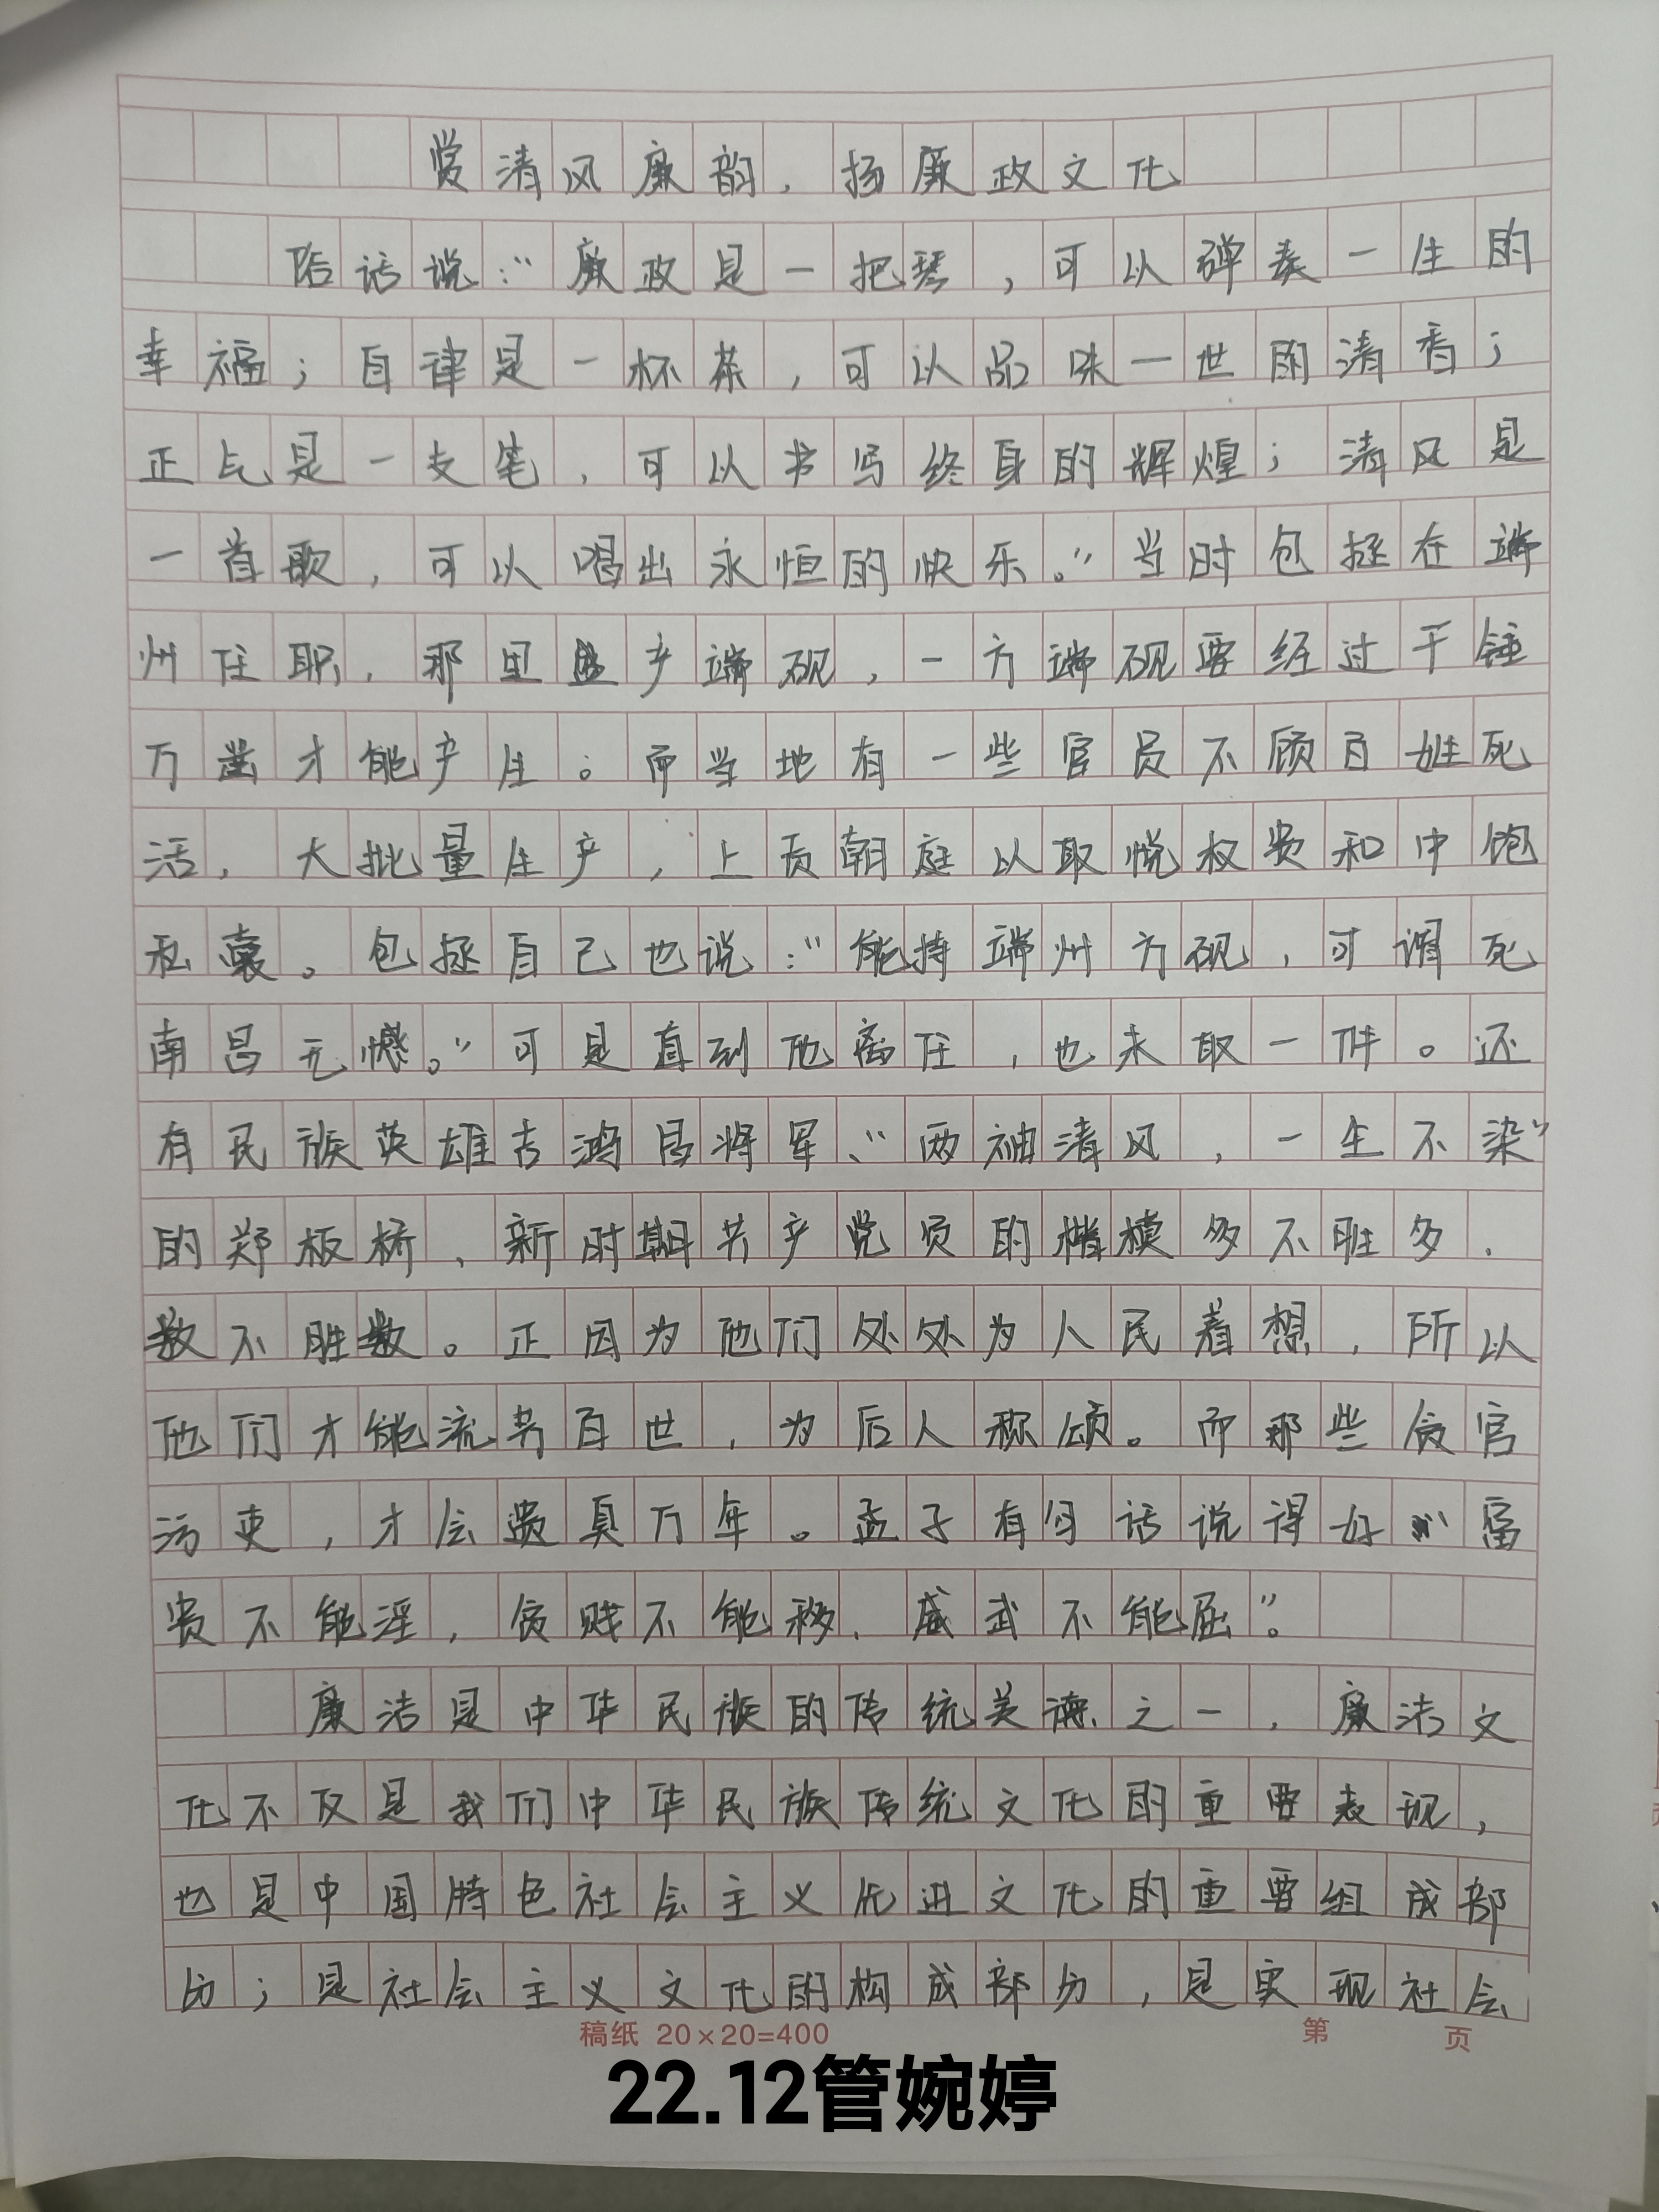 赏清风廉韵，扬廉政文化
俗话说：“廉政是一把琴，可以弹奏一生的
幸福；自律是一杯茶，可以品味一世的清香；
正气是一支笔，可以书写终身的辉煌；清风是
一首歌，可以唱出永恒的快乐。”当时包拯在端
州任职，那里盛产端砚，一方端砚要经过千锤
万凿才能产生。而当地有一些官员不顾百姓死
活，大批量生产，上贡朝庭以取悦权贵和中饱
私囊。包拯自己也说：“能持端州方砚，可谓死
南昌无憾。”可是直到他离任，也未取一件。还
有民族英雄吉鸿昌将军、“两袖清风，一生不染”
的郑板桥、新时期共产党员的楷模多不胜多，
数不胜数。正因为他们处处为人民着想，所以
他们才能流芳百世，为后人称颂。而那些贪官
污吏，才会遗臭万年。孟子有句话说得好“富
贵不能淫，贫贱不能移，威武不能屈”。
廉洁是中华民族的传统美德之一，廉洁文
化不仅是我们中华民族传统文化的重要表现，
也是中国特色社会主义先进文化的重要组成部
分；是社会主义文化的构成部分，是实现社会
稿纸 20×20=400 第 页
22.12管婉婷